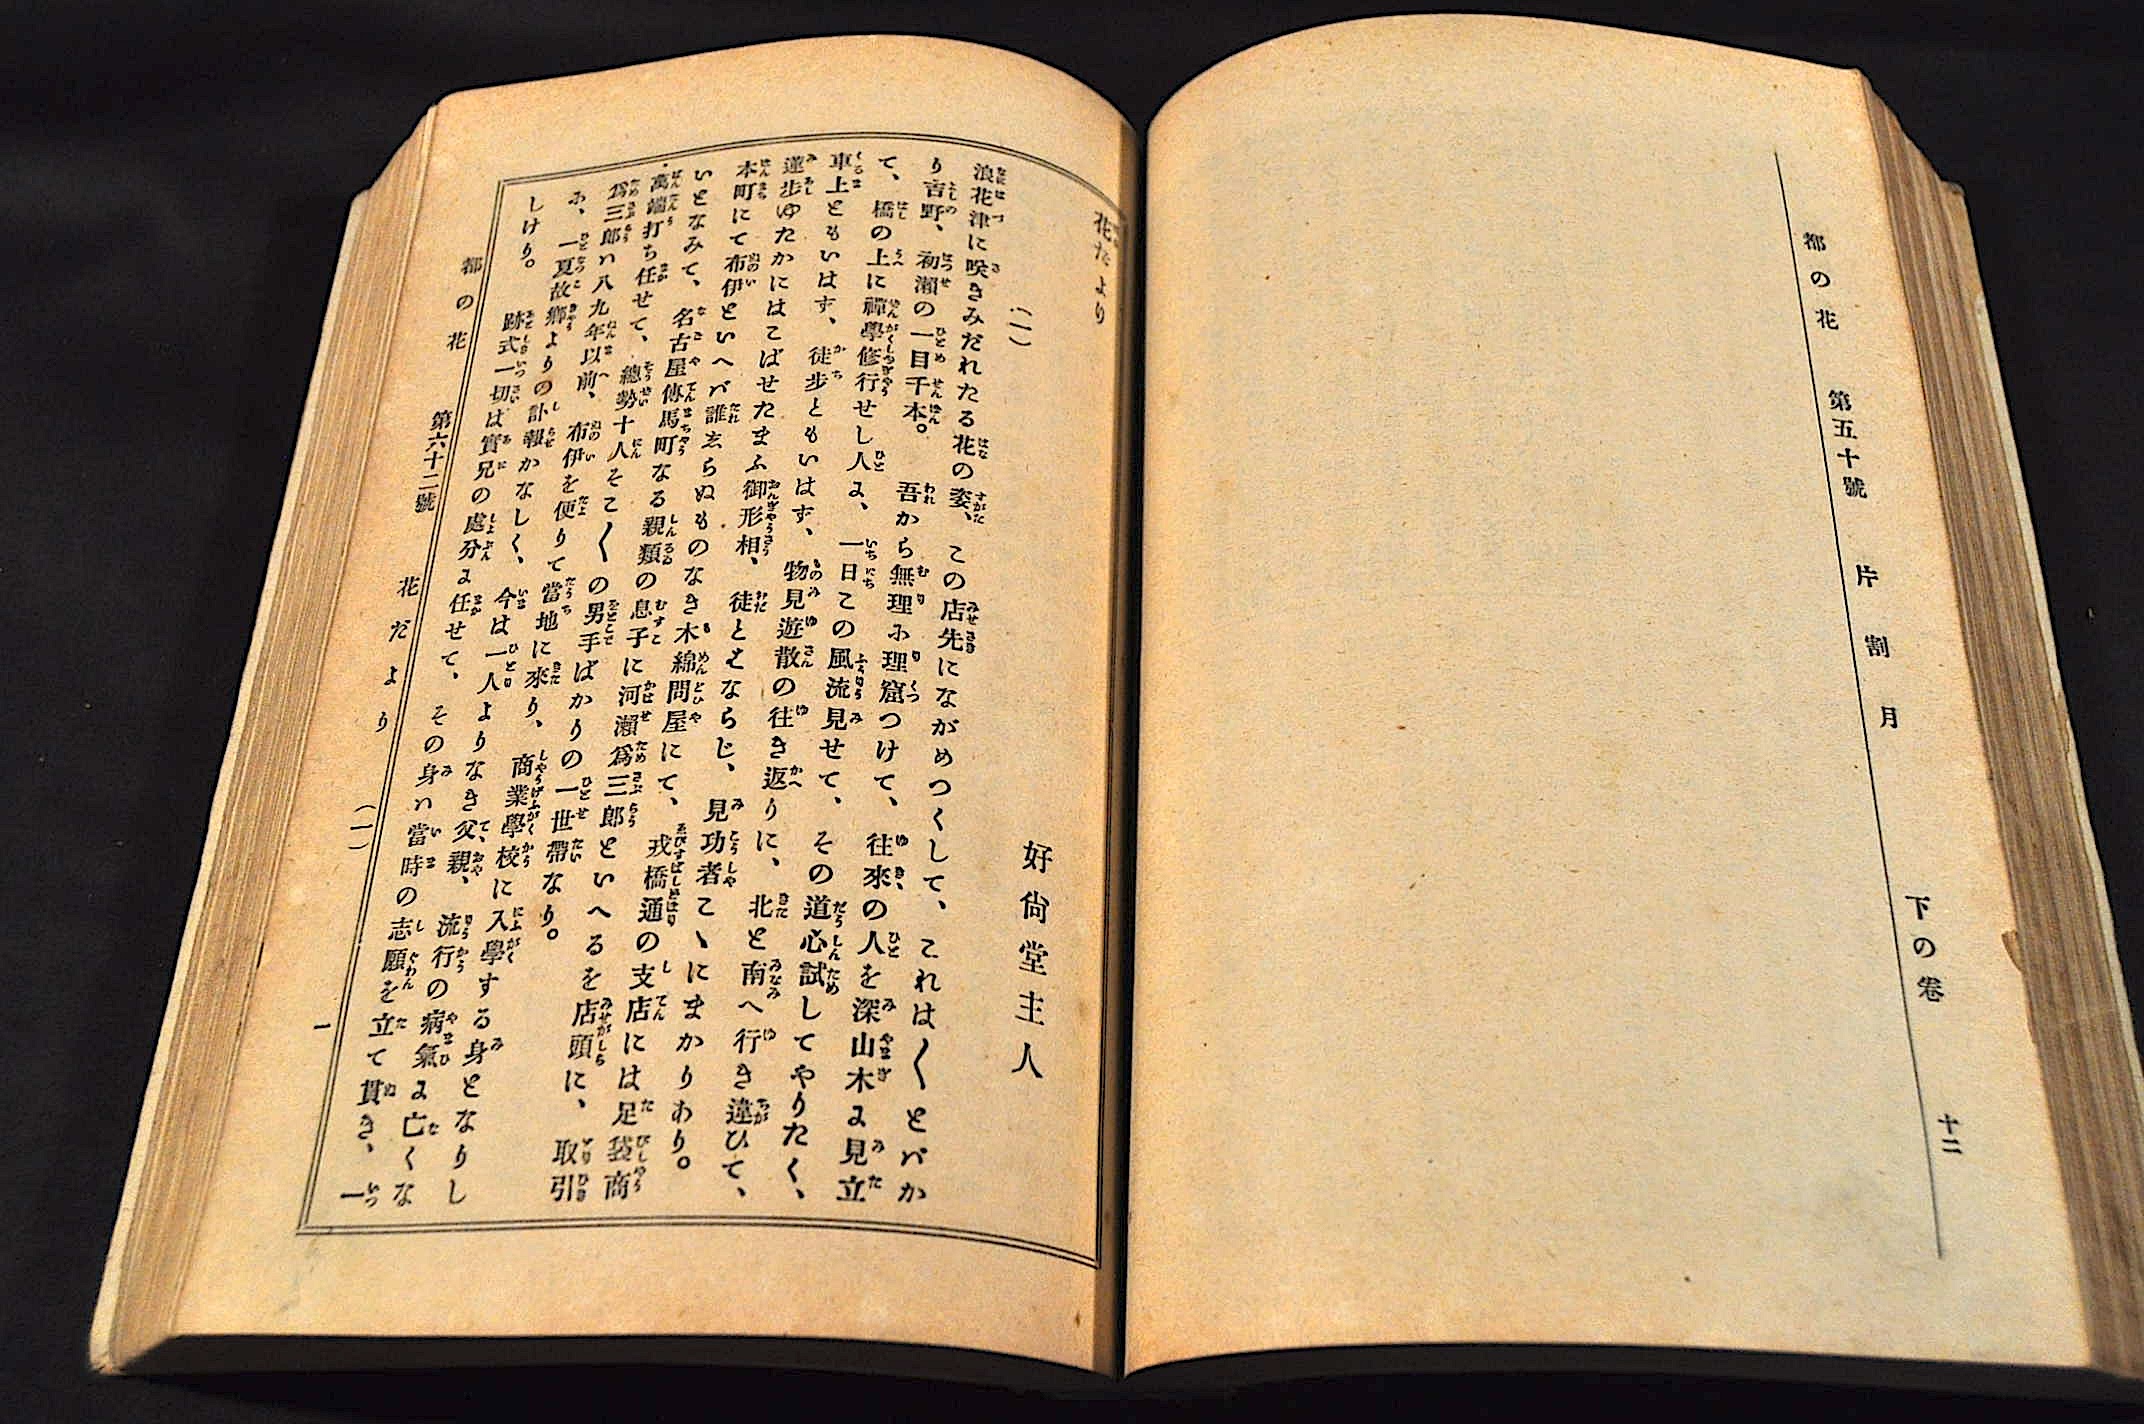 都の花 第五十號 片割月 下の卷 十二
花だより
(一) 好尙堂主人
浪花津に咲きみだれたる花の姿、この店先にながめつくして、これは〱とバか
り吉野、初瀨の一目千本。吾から無理ホ理窟つけて、往來の人を深山木よ見立
て、橋の上に禪學修行せし人よ、一日この風流見せて、その道心試してやりたく、
車上ともいはず、徒步ともいはず、物見遊散の往き返りに、北と南へ行き違ひて、
蓮步ゆたかにはこばせたまふ御形相、徒とはならじ、見功者こゝにまかりあり。
本町にて布伊といへバ誰ゑらぬものなき木綿問屋にて、戎橋通の支店には足袋商
いとなみて、名古屋傳馬町なる親類の息子に河瀨爲三郎といへるを店頭に、取引
萬端打ち任せて、總勢十人そこ〱の男手ばかりの一世帶なり。
爲三郎ハ八九年以前、布伊を便りて當地に來り、商業學校に入學する身となりし
ホ、一夏故鄕よりの訃報かなしく、今は一人よりなき父親、流行の病氣よ亡くな
しけり。跡式一切は實兄の處分よ任せて、その身ハ當時の志願を立て貫き、一
都の花 第六十二號 花だより (一) 一